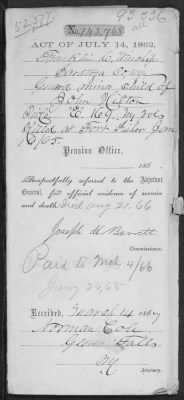 52,277
93,556
No. 142,968
ACT OF JULY 14, 1862.
Franklin D.
Saratoga Co NY
Guard minor child of
John Wilton
Priv. E. 169 NY Vols
Killed at Fort Fisher Jan
15/65.
Pension Office,
186
Respectfully referred to the Adjutant
General, for official evidence of service
and death. Aug 21, 66
Joseph H Barrett
Commissioner.
Paid to Mch 4/66
Jany 26, 65
Received, March 14 186
Norman Cole
Glens Falls
NY
Attorney.